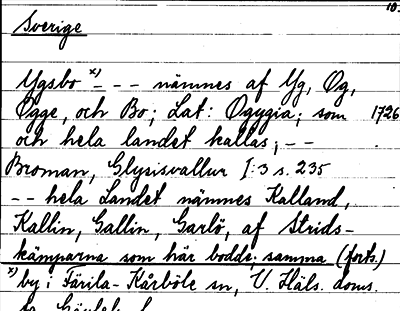 10.
Sverige
Ygsbo x) - - - nämnes af Yg, Og,
Ogge, och Bo; Lat: Ogygia; som 1726
och hela landet kallas; - -
Broman, Glysisvallur I:3 s. 235
- - hela Landet nämnes Kalland,
Kallin, Gallin, Garlö, af Strids-
kämparna som här bodde; samma (forts.)
x) by i Färila-Kårböle sn, V. Häls. doms.